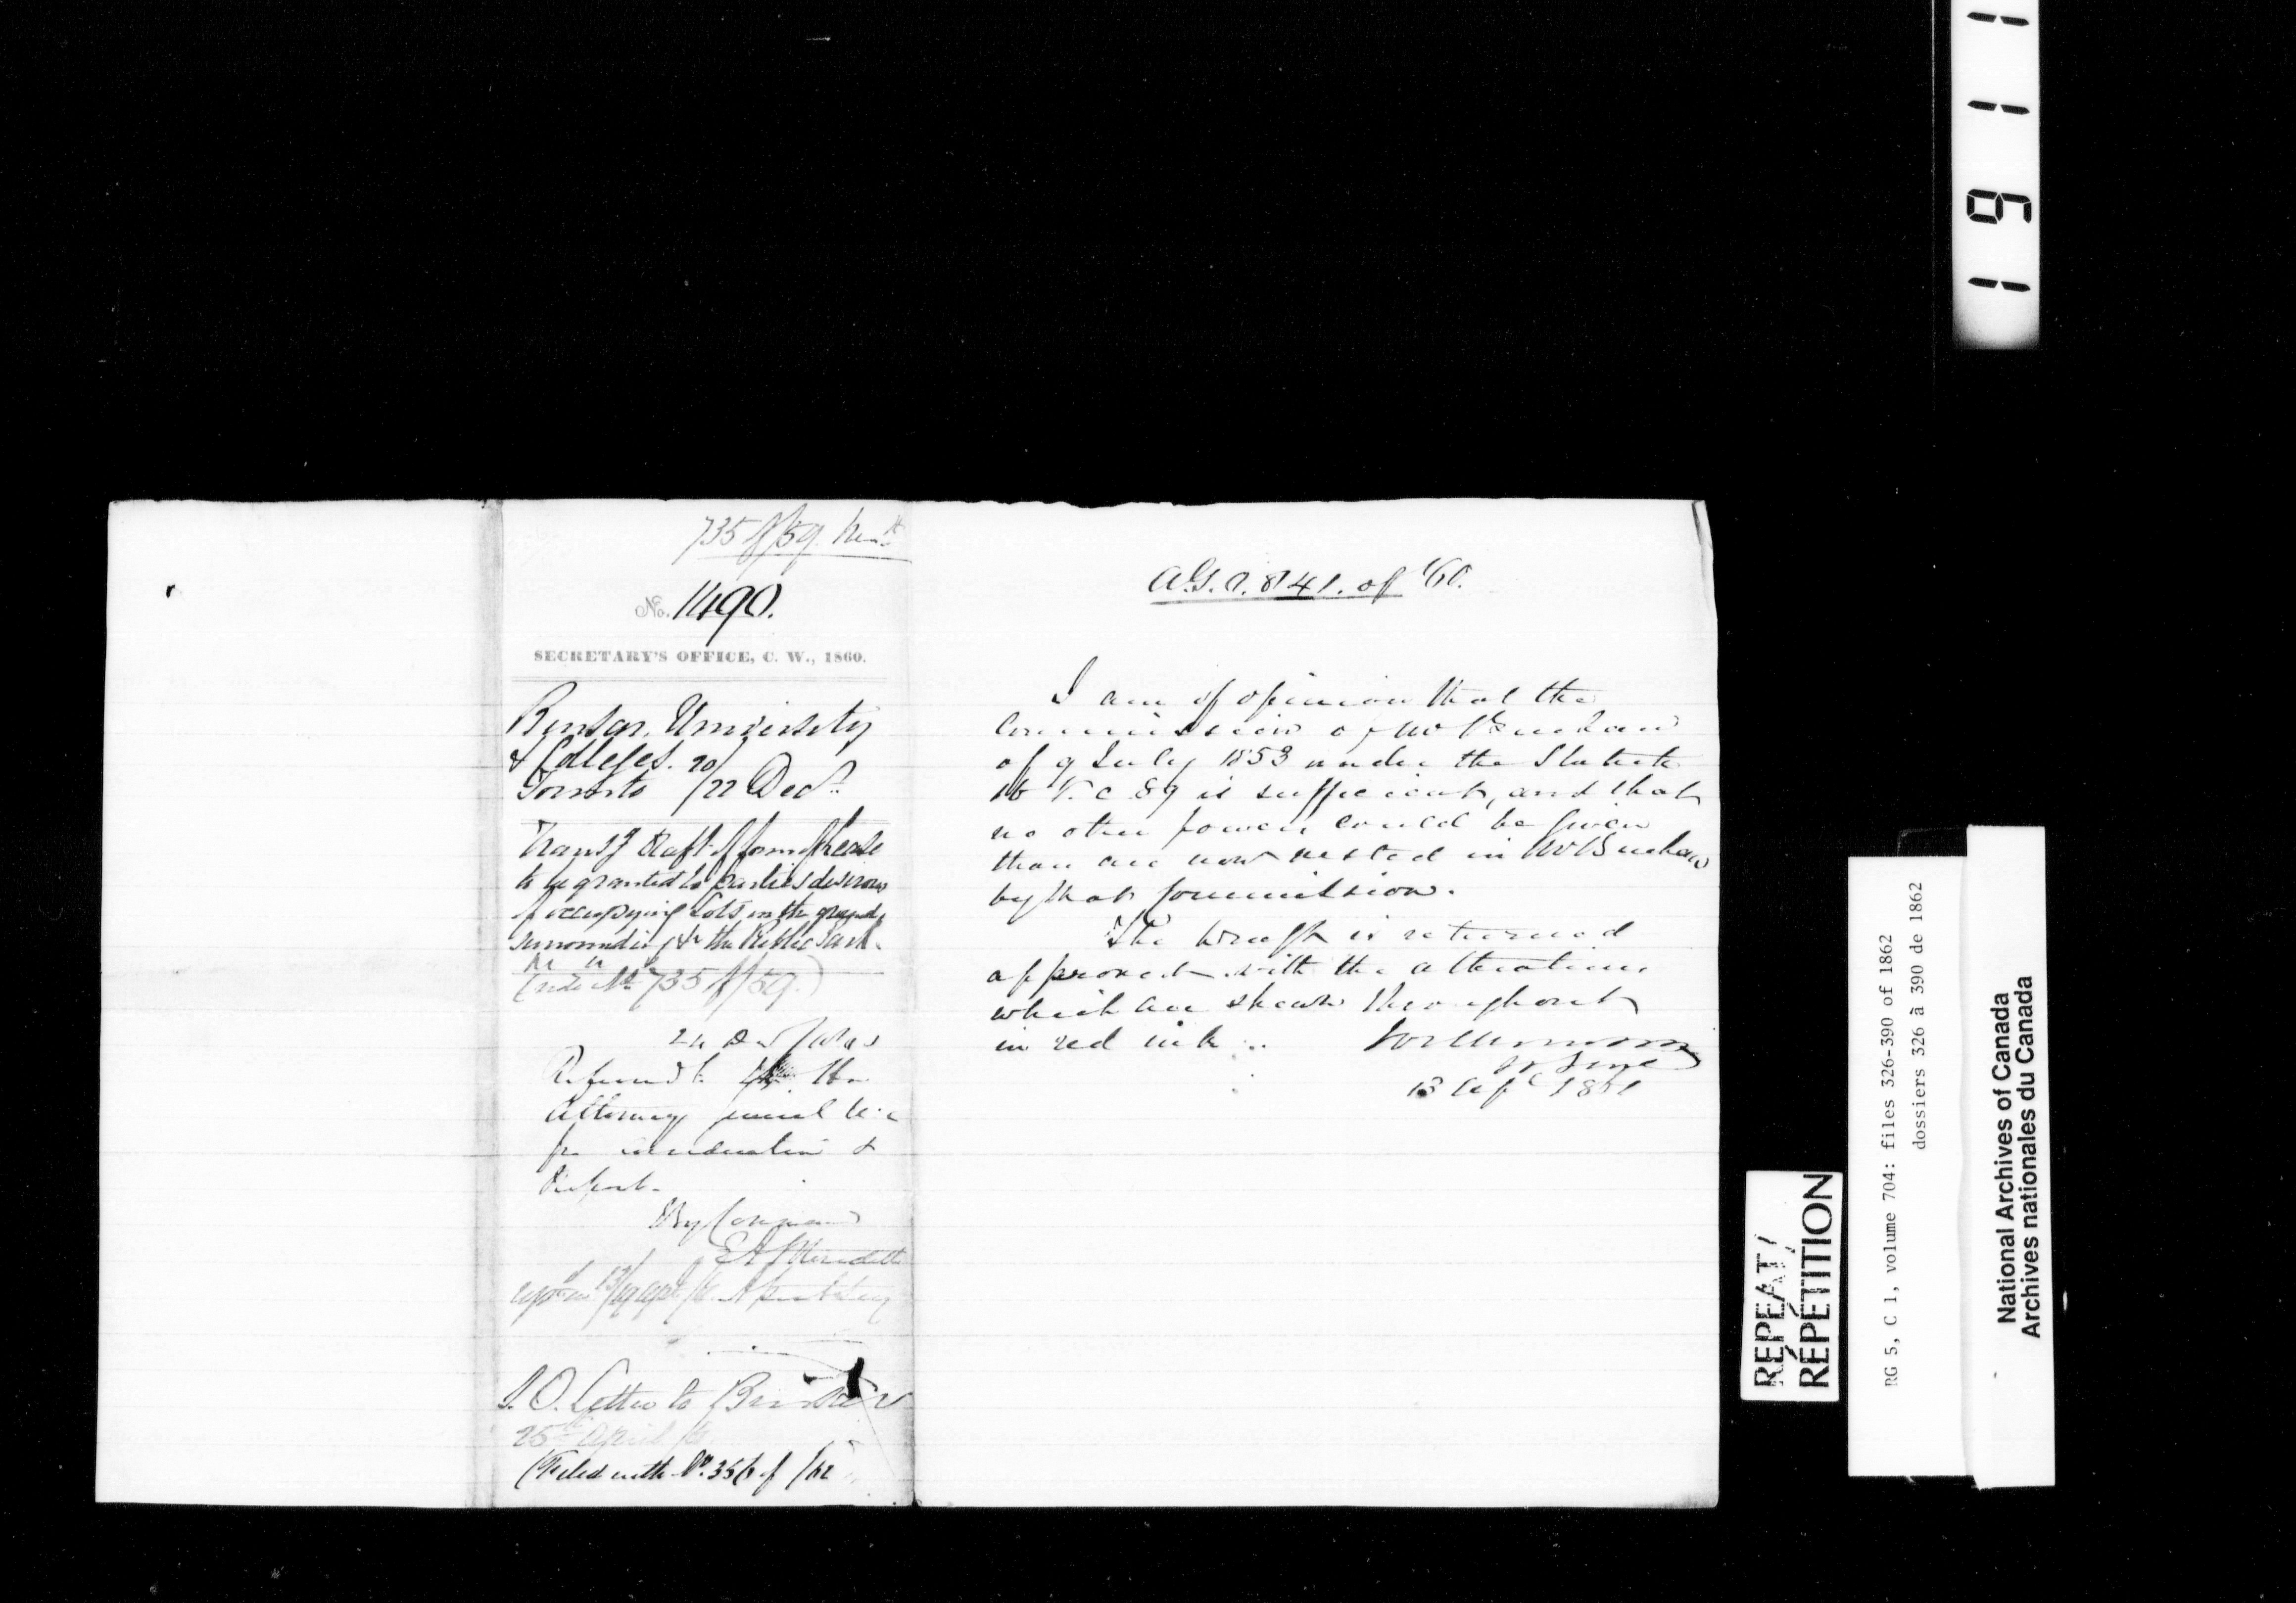 735 of/59.
No. 1490.
SECRETARY'S OFFICE, C. W., 1860.
Bursar, University
& Colleges. 20/
Toronto /22 Decr.
Transg Draft of form of Lease
to be granted to parties desirous
of occupying Lots in the grounds
surrounding the Public Park.
(vide No 735 of/59.)
24 Dec
Referred to the Hon
Attorney General U.C
for consideration &
Report.
By Command
E A Meredith
13/ 19 Apl
S.O. Letter to Bursar
25th April /61
(Filed with No. 356 of /62
A.G.O. 841. of '60.
I am of opinion that the
Commission of Mr Buchan
of 9 July 1853 under the Statute
16 V. c 89 is sufficient, and that
no other powers could be given
than are now vested in Mr Buchan
by that Commission.
The Draft is returned
approved with the alterations
which are shewn throughout
in red ink
13 Apl 1861
1 1 9 1
REPEAT/
RÉPÉTITION
RG 5, C 1, volume 704: files 326-390 of 1862
dossiers 326 à 390 de 1862
National Archives of Canada
Archives nationales du Canada